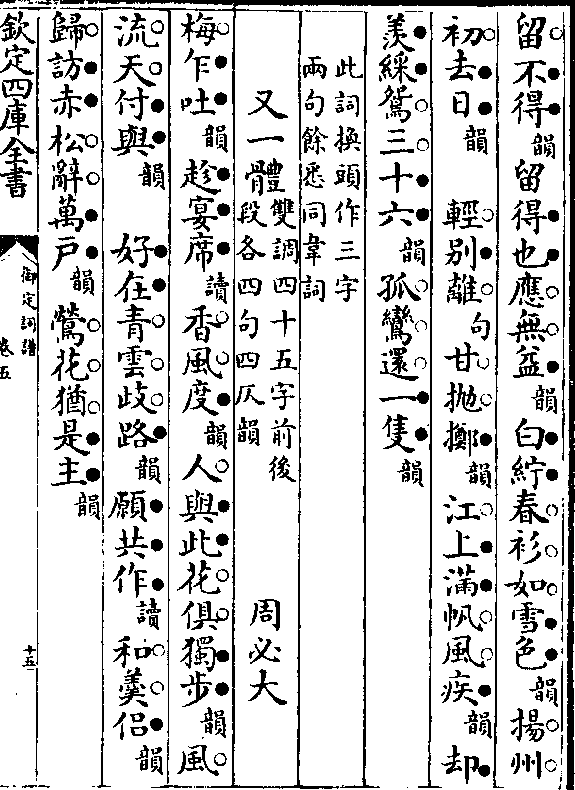 留不得韻留得也應無益韻白紵春衫如雪色韻揚州
初去日韻　輕別離句甘抛擲韻江上滿帆風疾韻却
羡綵鴛三十六韻孤鸞還一隻韻
此詞換頭作三字
兩句餘悉同韋詞
又一體雙調四十五字前後
段各四句四仄韻　周必大
梅乍吐韻趁宴席讀香風度韻人與此花俱獨步韻風
流天付與韻　好在青雲歧路韻願共作讀和羹侣韻
歸訪赤松辭萬戶韻鶯花猶是主韻
欽定四庫全書
御定詞譜
卷五
十五